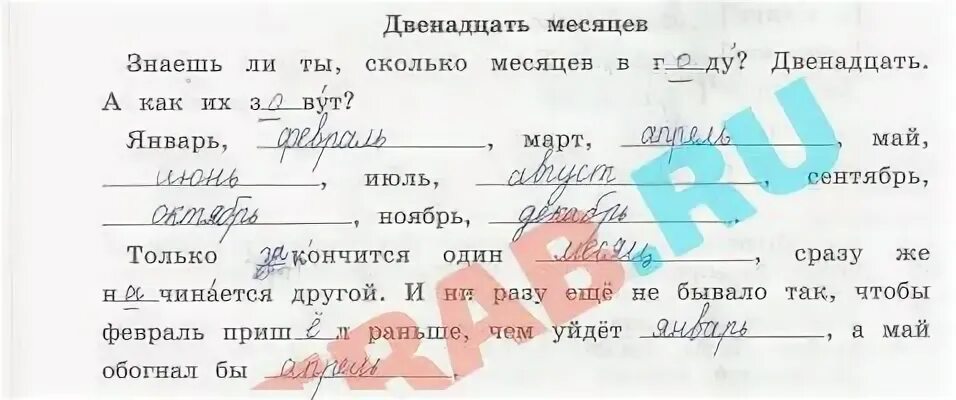 Двенадцать месяцев
Знаешь ли ты, сколько месяцев в году́? Двенадцать.
А как их зову́т?
Январь, февраль, март, апрель, май,
июнь, июль, август, сентябрь,
октябрь, ноябрь, декабрь.
Только зако́нчится один месяц, сразу же
начина́ется другой. И ни разу ещё не бывало так, чтобы
февраль пришёл раньше, чем уйдёт январь, а май
обогнал бы апрель.
RAB.RU